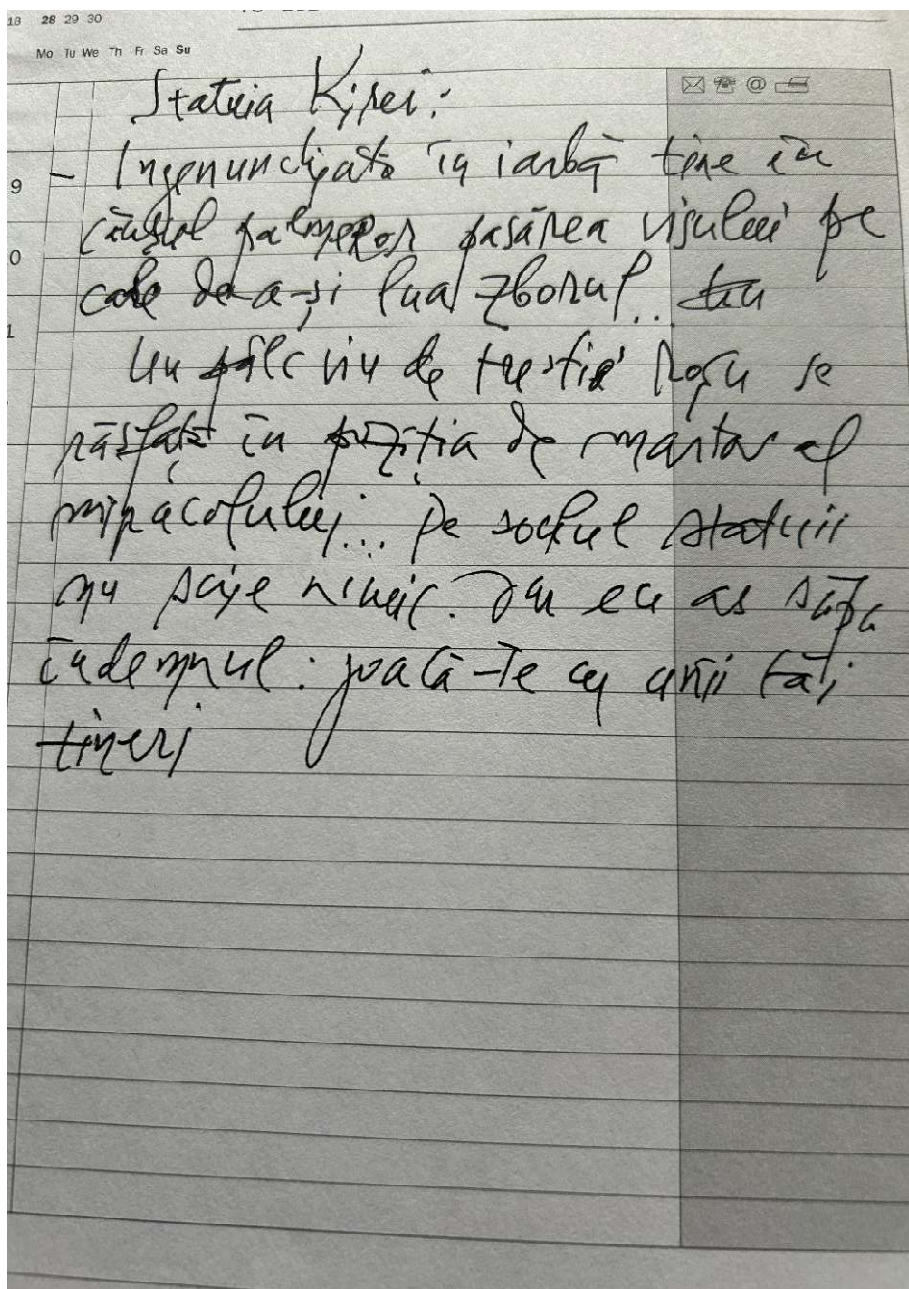 18 28 29 30
Mo Tu We Th Fr Sa Su
Statuia Kirei:
9 - Ingenunchiată în iarbă ține în
căușul palmelor pasărea visului pe
0 cale de a-și lua zborul...
1
Un pâlc viu de trestie roșu se
răsfață în poziția de martor al
miracolului... Pe soclul statuii
nu scrie nimic. Dar eu aș săpa
îndemnul: joacă-te cu anii tăi
tineri